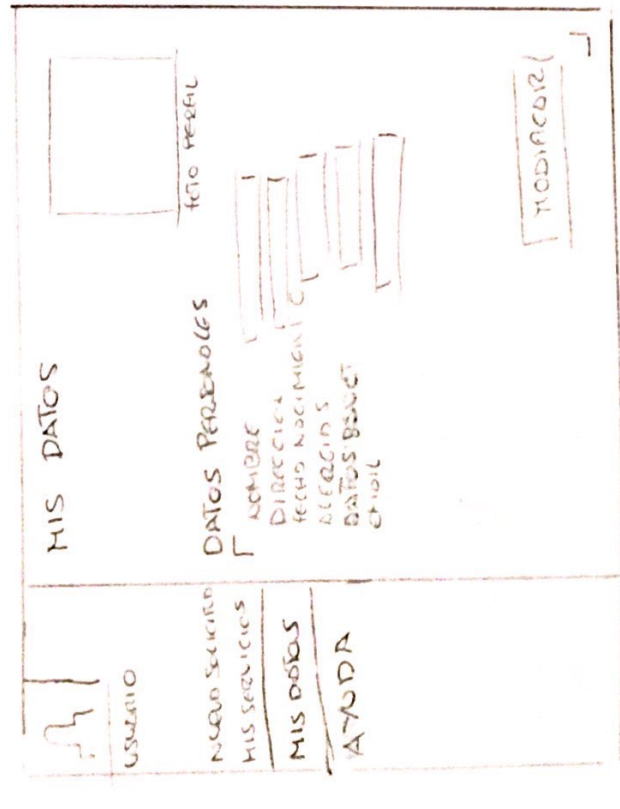 USUARIO
NUEVA SOLICITUD
MIS SERVICIOS
MIS DATOS
AYUDA
MIS DATOS
FOTO PERFIL
DATOS PERSONALES
NOMBRE
DIRECCION
FECHA NACIMIENTO
ALERGIAS
DATOS
EMAIL
MODIFICAR